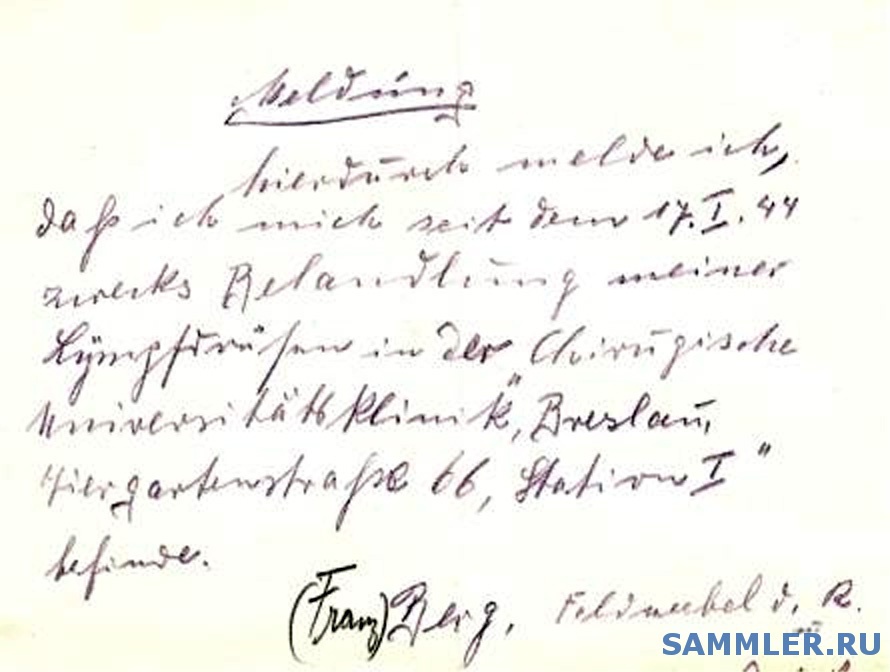 Meldung
hierdurch melde ich,
daß ich mich seit dem 17.I.44
zwecks Behandlung meiner
Lympfdrüsen in der "Chirugische
Universitätsklinik", Breslau,
Tiergartenstraße 66, Station I"
befinde.
(Franz) Berg, Feldwebel d. R.
SAMMLER.RU